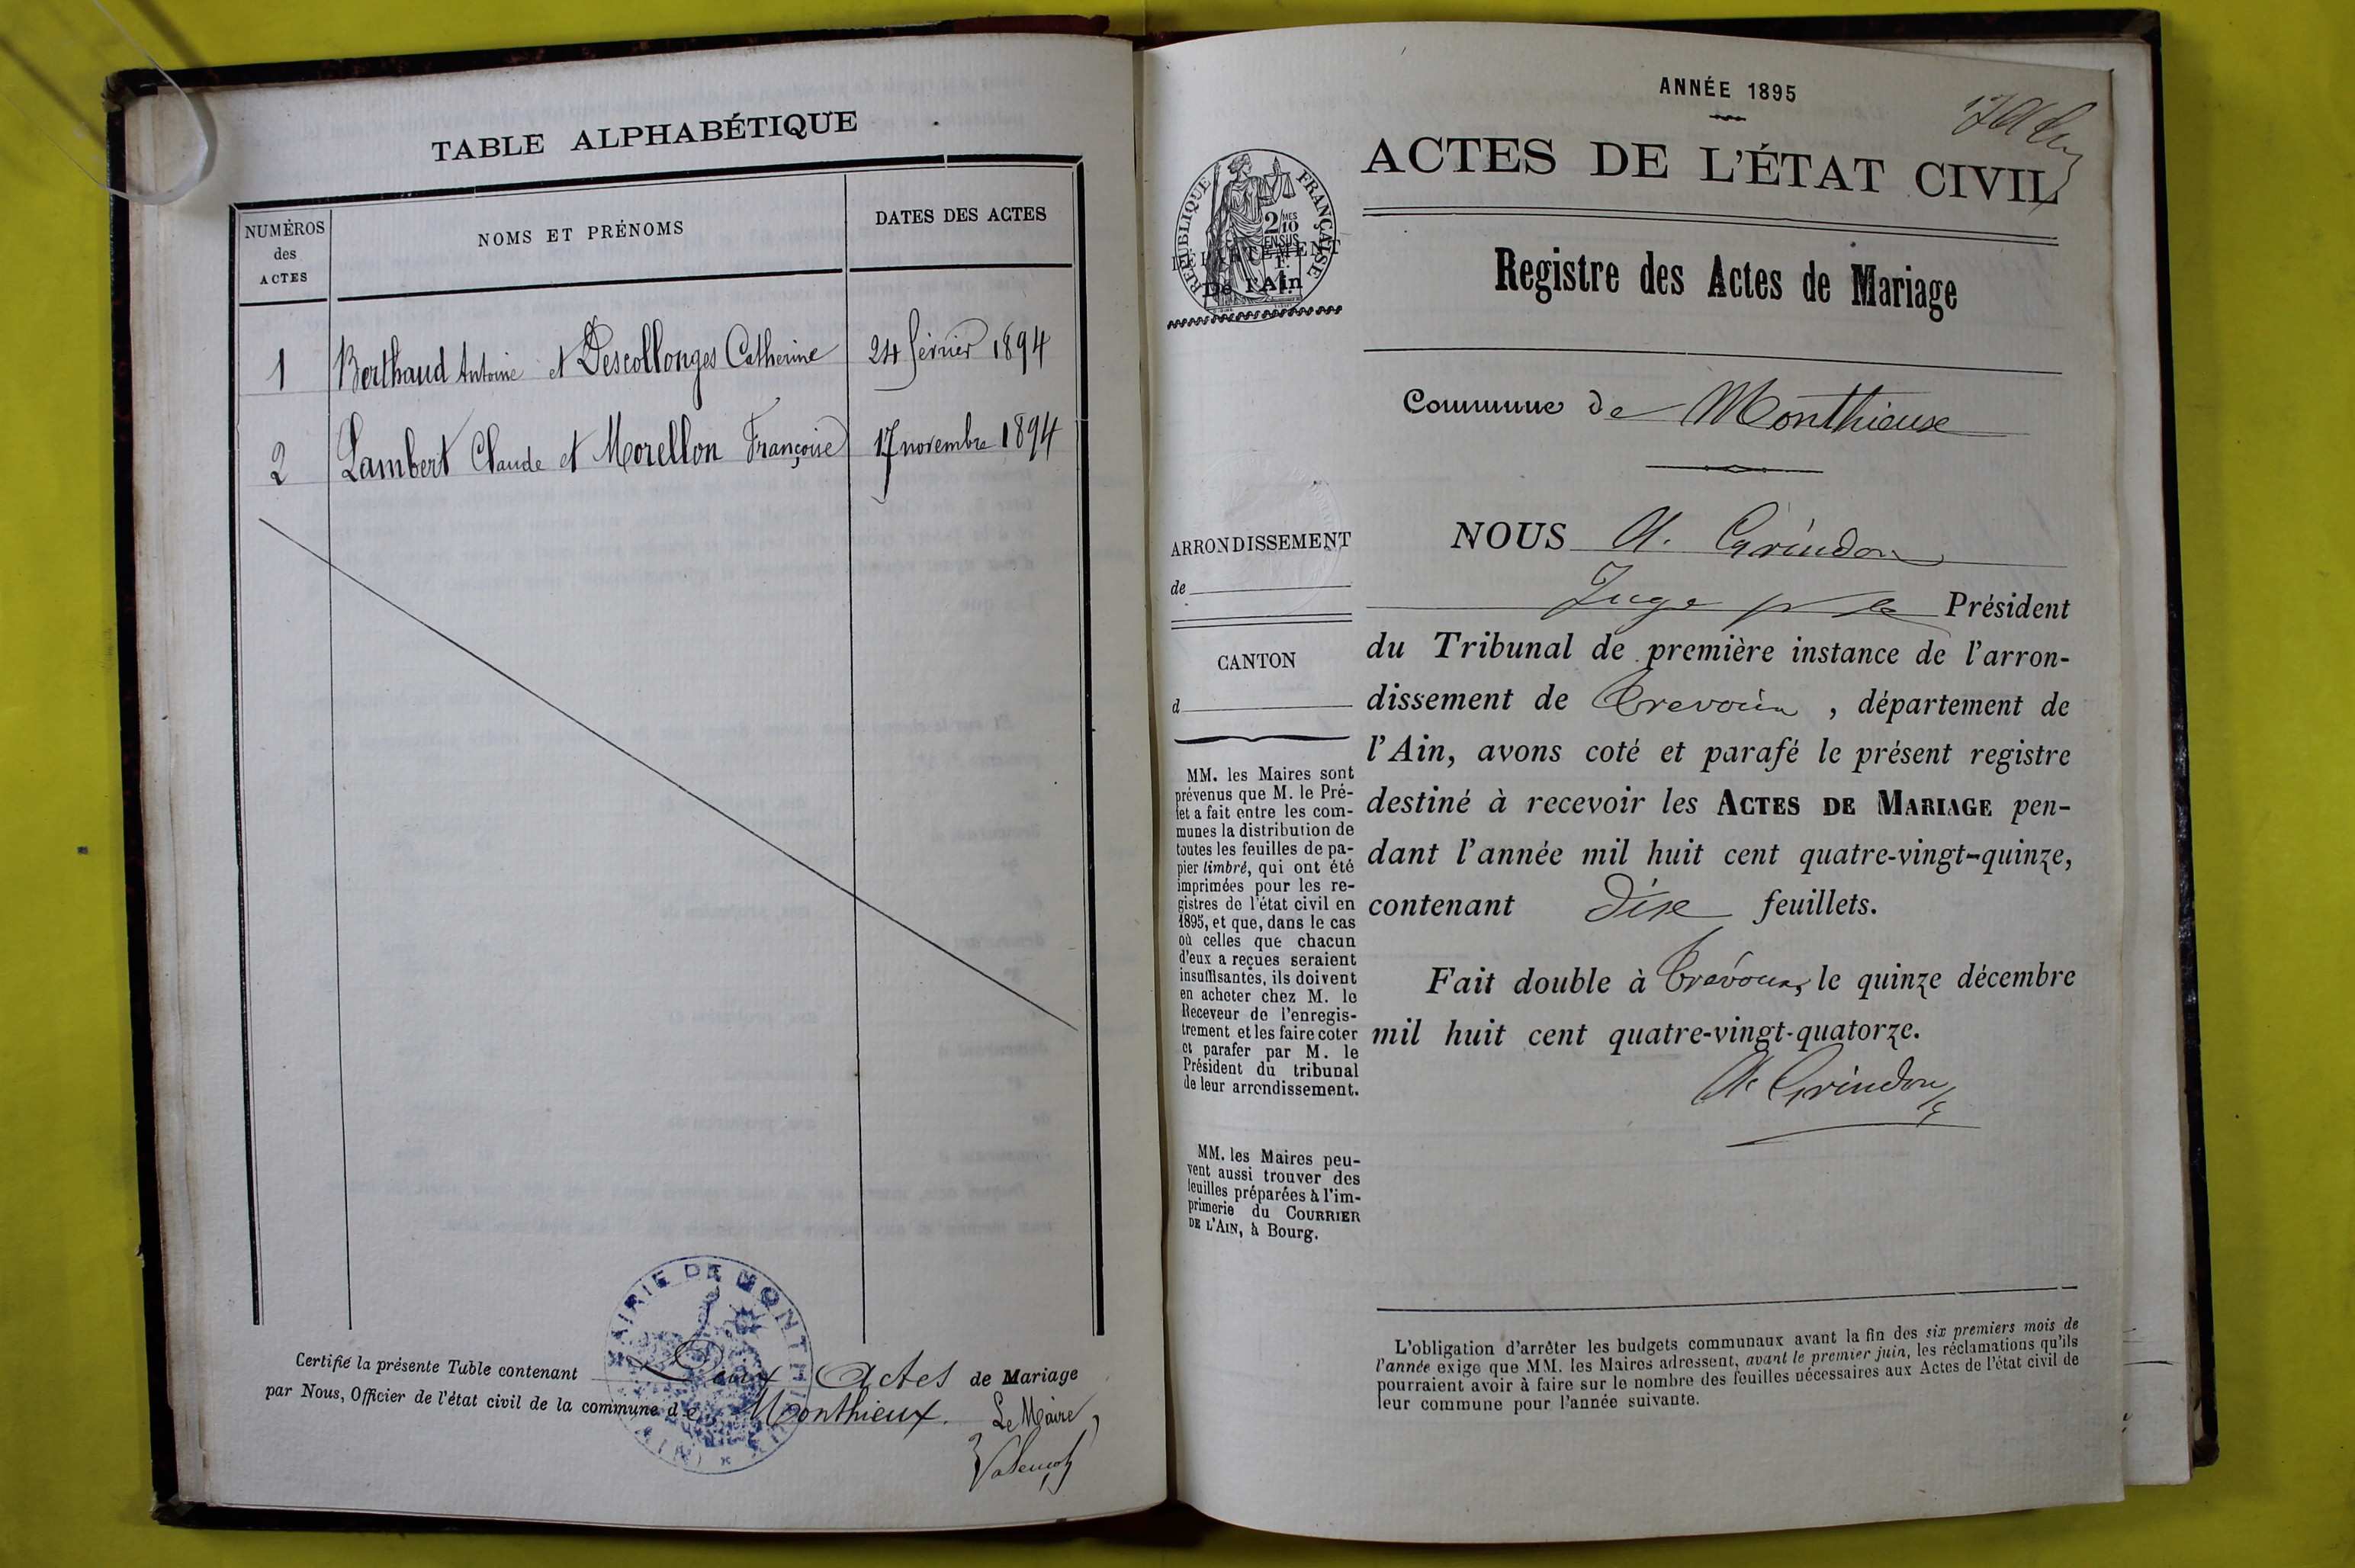 TABLE ALPHABÉTIQUE
NUMÉROS des ACTES
NOMS ET PRÉNOMS
DATES DES ACTES
1 Berthaud Antoine et Descollonges Catherine 24 février 1894
2 Lambert Claude et Morellon Françoise 17 novembre 1894
MAIRIE DE MONTHIEUX (AIN)
Certifié la présente Table contenant Deux Actes de Mariage
par Nous, Officier de l'état civil de la commune de Monthieux. Le Maire,
ANNÉE 1895
ACTES DE L'ÉTAT CIVIL
RÉPUBLIQUE FRANÇAISE
2/10 MES EN SUS
DÉPARTEMENT
De l'Ain
Registre des Actes de Mariage
Commune de Monthieux
ARRONDISSEMENT
de
CANTON
d
MM. les Maires sont
prévenus que M. le Pré-
fet a fait entre les com-
munes la distribution de
toutes les feuilles de pa-
pier timbré, qui ont été
imprimées pour les re-
gistres de l'état civil en
1895, et que, dans le cas
où celles que chacun
d'eux a reçues seraient
insuffisantes, ils doivent
en acheter chez M. le
Receveur de l'enregis-
trement et les faire coter
et parafer par M. le
Président du tribunal
de leur arrondissement.
MM. les Maires peu-
vent aussi trouver des
feuilles préparées à l'im-
primerie du COURRIER
DE L'AIN, à Bourg.
NOUS A. Grindon
Juge pr le Président
du Tribunal de première instance de l'arron-
dissement de Trevoux, département de
l'Ain, avons coté et parafé le présent registre
destiné à recevoir les ACTES DE MARIAGE pen-
dant l'année mil huit cent quatre-vingt-quinze,
contenant dix feuillets.
Fait double à Trévoux, le quinze décembre
mil huit cent quatre-vingt-quatorze.
A. Grindon
L'obligation d'arrêter les budgets communaux avant la fin des six premiers mois de
l'année exige que MM. les Maires adressent, avant le premier juin, les réclamations qu'ils
pourraient avoir à faire sur le nombre des feuilles nécessaires aux Actes de l'état civil de
leur commune pour l'année suivante.